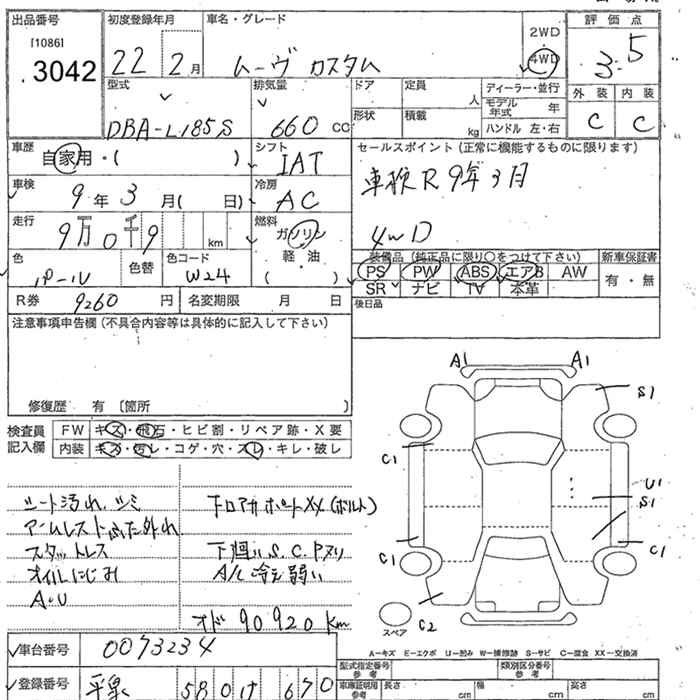 出品番号 初度登録年月 車名・グレード 評価点
[1086]
3042
22 2月 ムーヴ カスタム
2WD
4WD
3.5
型式 排気量 ドア 定員 人 ディーラー・並行
モデル年式 年
外装 内装
DBA-L185S 660 CC 形状 積載 kg ハンドル 左・右 C C
車歴 自家用・( ) シフト IAT
セールスポイント(正常に機能するものに限ります)
車検 9年3月( 日) 冷房 AC
車検R9年3月
走行 9万0千9 km 燃料 ガソリン
軽・油
( )
4WD
色 パール 色替 色コード W24
装備品(純正品に限り〇をつけて下さい) 新車保証書
PS PW ABS エアB AW 有・無
SR ナビ TV 本革
R券 9260円 名変期限 月 日
後日品
注意事項申告欄(不具合内容等は具体的に記入して下さい)
修復歴 有 〔箇所 〕
検査員記入欄
FW キズ・飛石・ヒビ割・リペア跡・X要
内装 キズ・汚レ・コゲ・穴・スレ・キレ・破レ
A1 A1
S1
C1
U1
S1
C1 C1
C2
スペア
シート汚れ、シミ
アームレストふた外れ
スタットレス
オイルにじみ
A・U
下回りS.C.Pヌリ
A/C冷え弱い
オド90920km
A-キズ E-エクボ U-凹み W-補修跡 S-サビ C-腐食 XX-交換済
車台番号 0073234
型式指定番号 参考 類別区分番号 参考
登録番号 580 け 670
車庫証明用 参考 長さ cm 幅 cm 高さ cm